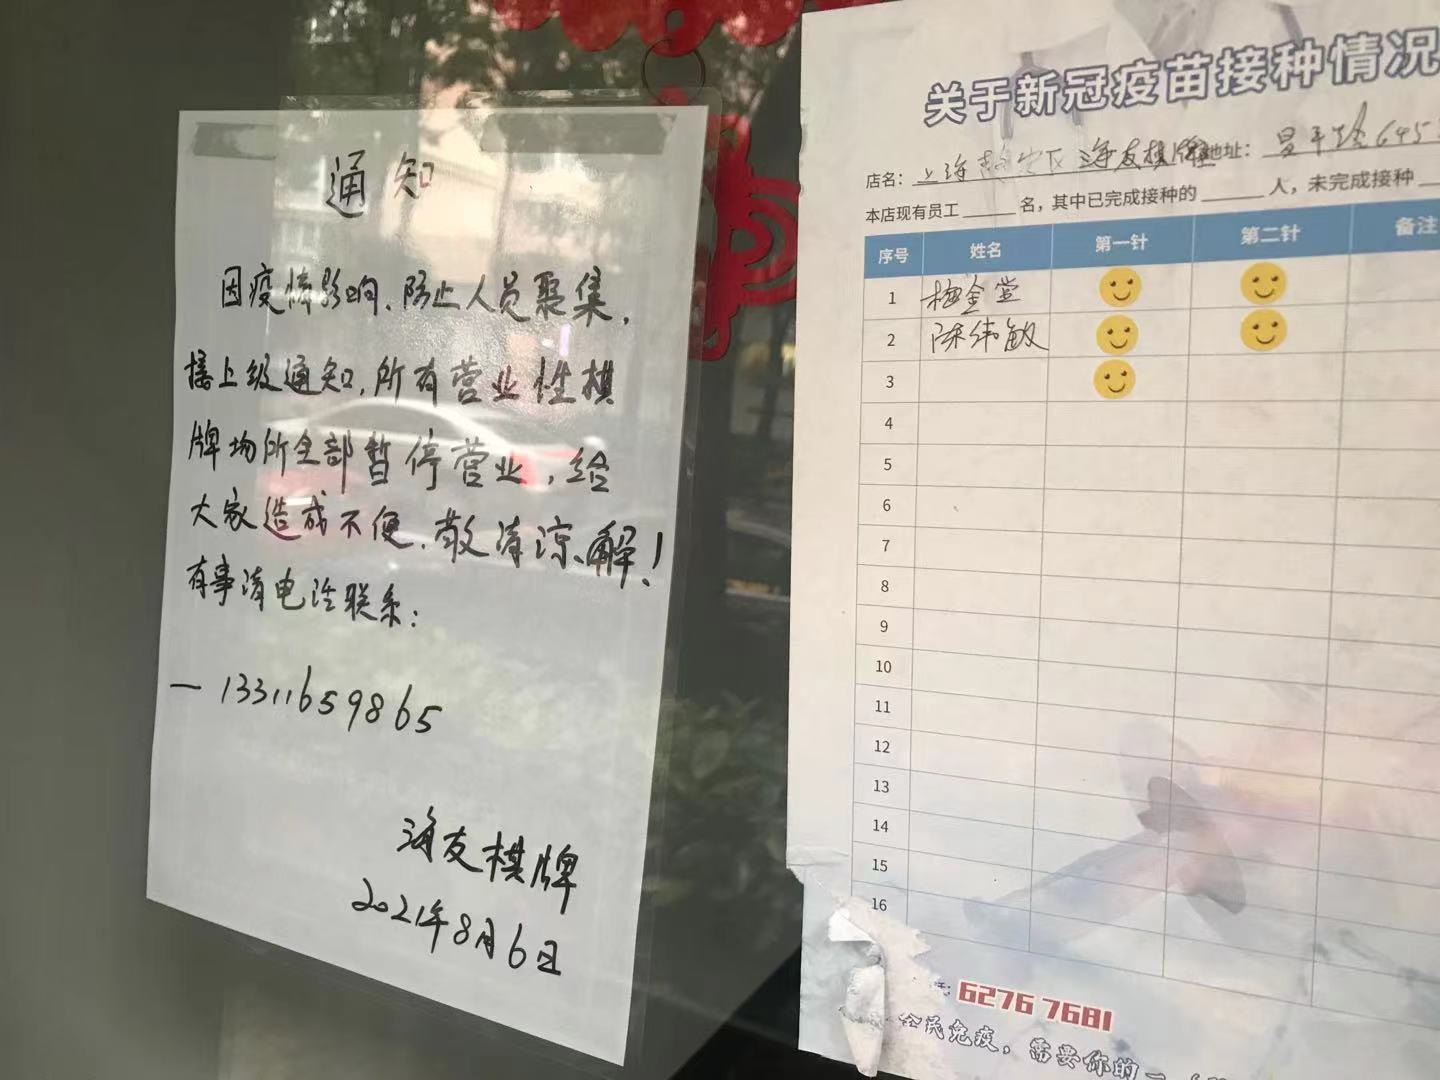 通知
因疫情影响,防止人员聚集,
接上级通知,所有营业性棋
牌场所全部暂停营业,给
大家造成不便,敬请谅解!
有事请电话联系:
— 13311659865
海友棋牌
2021年8月6日
关于新冠疫苗接种情况
店名: 上海 海友棋牌 地址: 昌平路645
本店现有员工____名,其中已完成接种的____人,未完成接种____
序号 姓名 第一针 第二针 备注
1 梅金堂
2 陈伟敏
3
4
5
6
7
8
9
10
11
12
13
14
15
16
6276 7681
全民免疫,需要你的一